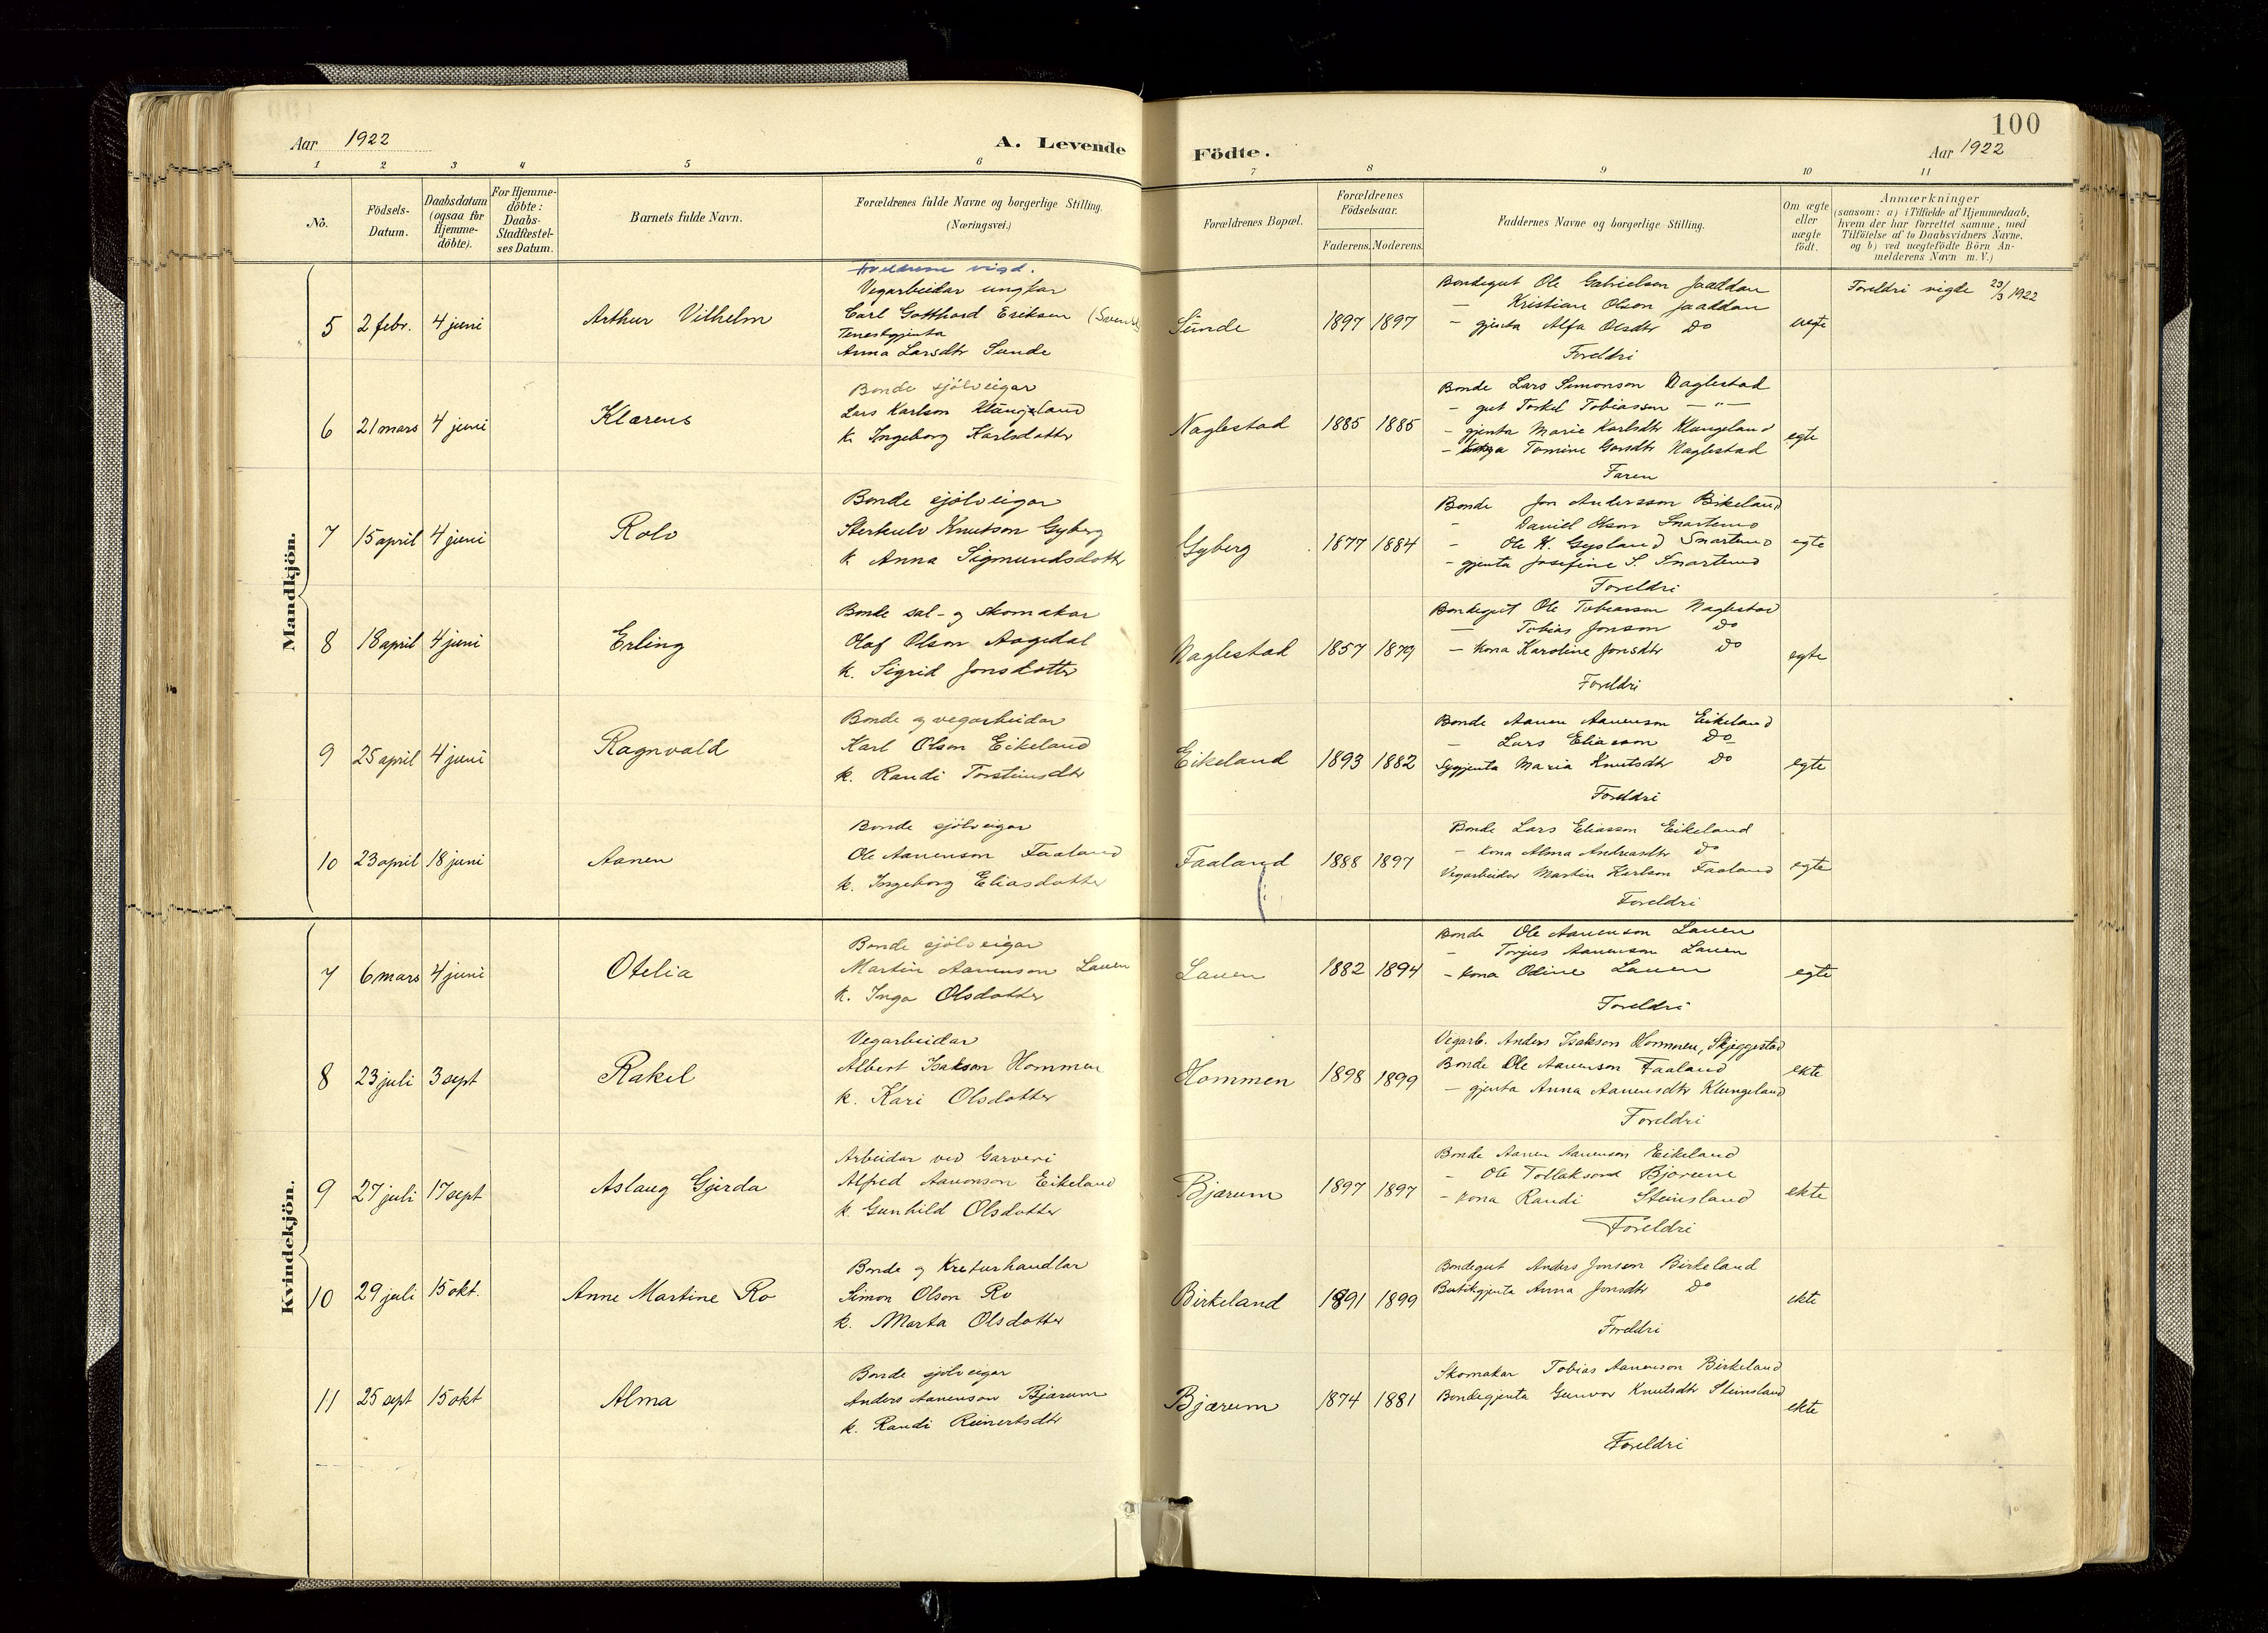 100
Aar 1922
A. Levende Födte.
Aar 1922
1 2 3 4 5 6 7 8 9 10 11
No.
Födsels-Datum.
Daabsdatum (ogsaa for Hjemme-döbte).
For Hjemme-döbte: Daabs-Stadfæstel-ses Datum.
Barnets fulde Navn.
Forældrenes fulde Navne og borgerlige Stilling. (Næringsvei.)
Forældrenes Bopæl.
Forældrenes Födselsaar.
Faderens. Moderens.
Faddernes Navne og borgerlige Stilling.
Om ægte eller uægte födt.
Anmærkninger
(saasom: a) i Tilfælde af Hjemmedaab,
hvem der har forrettet samme, med
Tilföielse af to Daabsvidners Navne,
og b) ved uægtefödte Börn An-
melderens Navn m. V.)
Mandkjön.
5 2 febr. 4 juni Arthur Vilhelm
Foreldrene vigd.
Vegarbeidar ungkar
Carl Gotthard Eriksen (Svensk
Tenestgjenta
Anna Larsdtr Sunde
Sunde 1897 1897
Bondegut Ole Gabrielsen Jaaddan
— Kristian Olson Jaaddan
— gjenta Alfa Olsdtr Do
Foreldri
uegte
Foreldri vigde 23/3 1922
6 21 mars 4 juni Klarens
Bonde sjölveigar
Lars Karlson Klungeland
k. Ingeborg Karlsdotter
Naglestad 1885 1885
Bonde Lars Simonson Naglestad
— gut Torkel Tobiasson — " —
— gjenta Marie Karlsdtr Klungeland
— Tomine Naglestad
Faren
egte
7 15 april 4 juni Rolv
Bonde sjölveigar
Sterkulv Knutson Gyberg
k. Anna Sigmundsdotter
Gyberg 1877 1884
Bonde Jon Andersson Birkeland
— Daniel Olson Snartemo
— Ole K. Gysland Snartemo
— gjenta Josefine S. Snartemo
Foreldri
egte
8 18 april 4 juni Erling
Bonde sal- og skomakar
Olaf Olson Aagedal
k. Sigrid Jonsdotter
Naglestad 1857 1879
Bondegut Ole Tobiasson Naglestad
— Tobias Jonson Do
— kona Karoline Jonsdtr Do
Foreldri
egte
9 25 april 4 juni Ragnvald
Bonde og vegarbeidar
Karl Olson Eikeland
k. Randi Torsteinsdtr
Eikeland 1893 1882
Bonde Aanen Aanenson Eikeland
— Lars Eliasson Do
Sygjenta Maria Knutsdtr Do
Foreldri
egte
10 23 april 18 juni Aanen
Bonde sjölveigar
Ole Aanenson Faaland
k. Ingeborg Eliasdotter
Faaland 1888 1897
Bonde Lars Eliasson Eikeland
— kona Alma Andreasdtr Do
Vegarbeidar Martin Karlson Faaland
Foreldri
egte
Kvindekjön.
7 6 mars 4 juni Otelia
Bonde sjölveigar
Martin Aanenson Lauen
k. Inga Olsdotter
Lauen 1882 1894
Bonde Ole Aanenson Lauen
— Torjus Aanenson Lauen
— kona Odine Lauen
Foreldri
egte
8 23 juli 3 sept Rakel
Vegarbeidar
Albert Isakson Hommen
k. Kari Olsdotter
Hommen 1898 1899
Vegarb. Anders Isakson Hommen, Skjeggestad
Bonde Ole Aanenson Faaland
— gjenta Anna Aanensdtr Klungeland
Foreldri
ekte
9 27 juli 17 sept Aslaug Gjerda
Arbeidar ved Garveri
Alfred Aanonson Eikeland
k. Gunhild Olsdotter
Bjærum 1897 1897
Bonde Aanen Aanenson Eikeland
— Ole Tollakson Bjærum
— kona Randi Steinsland
Foreldri
ekte
10 29 juli 15 okt. Anne Martine Ro
Bonde og Kreturhandlar
Simon Olson Ro
k. Marta Olsdotter
Birkeland 1891 1899
Bondegut Anders Jonson Birkeland
Butikgjenta Anna Jonsdtr Do
Foreldri
ekte
11 25 sept 15 okt Alma
Bonde sjölveigar
Anders Aanenson Bjærum
k. Randi Reinertsdtr
Bjærum 1874 1881
Skomakar Tobias Aanenson Birkeland
Bondegjenta Gunvor Knutsdtr Steinsland
Foreldri
ekte